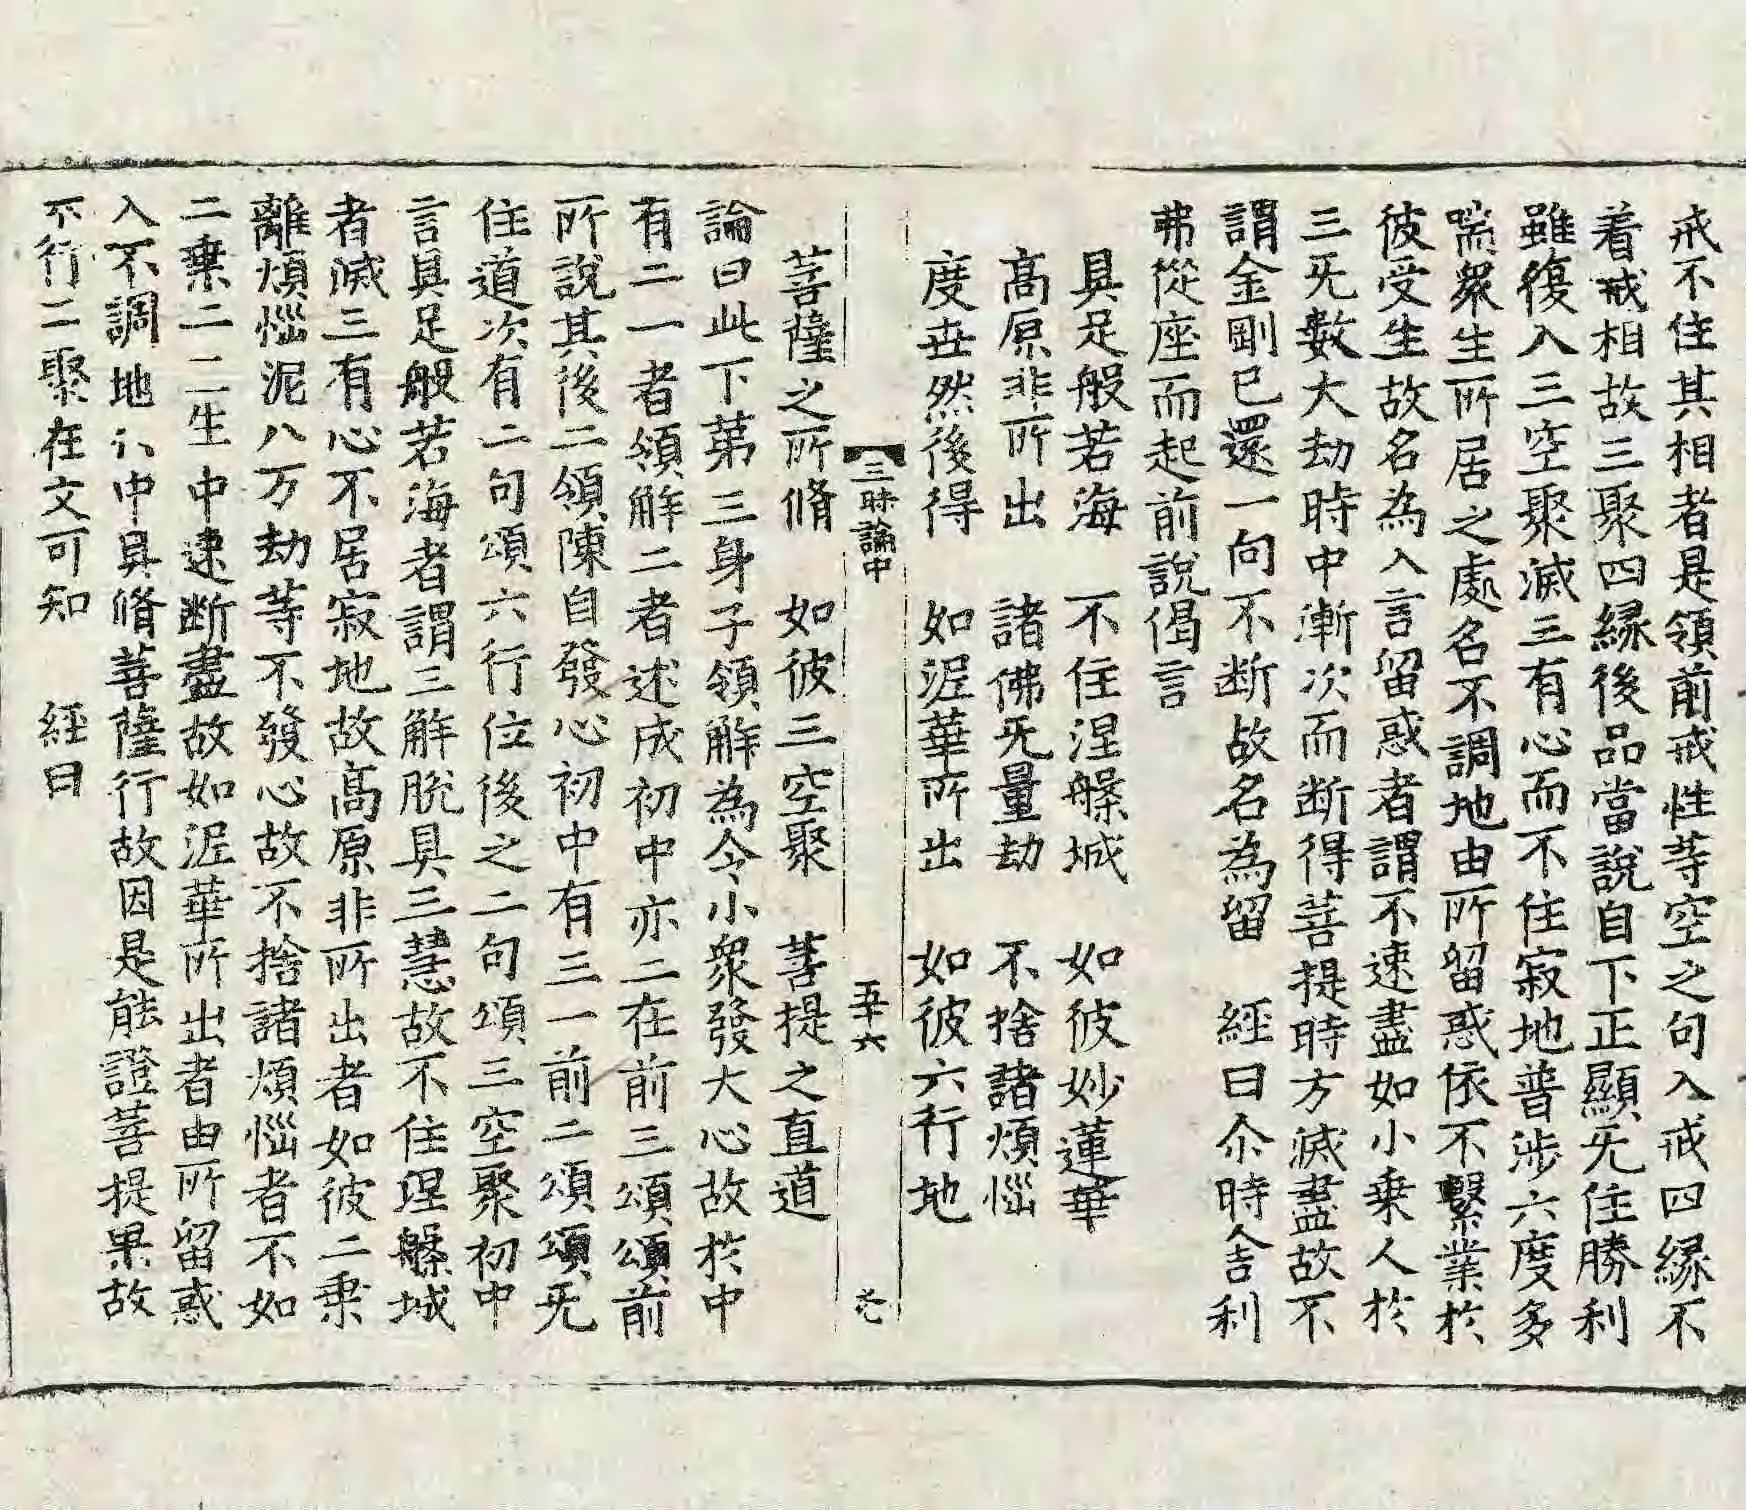 戒不住其相者是領前戒性等空之句入戒四緣不
着戒相故三聚四緣後品當說自下正顯旡住勝利
雖復入三空聚滅三有心而不住寂地普涉六度多
喘衆生所居之處名不調地由所留惑依不繫業於
彼受生故名為入言留惑者謂不速盡如小乗人於
三旡數大劫時中漸次而断得菩提時方滅盡故不
謂金剛已還一向不断故名為留 經曰尒時舍利
弗從座而起前說偈言
具足般若海 不住涅槃城 如彼妙蓮華
高原非所出 諸佛旡量劫 不捨諸煩惱
度世然後得 如泥華所出 如彼六行地
三昧論中 五十六
菩薩之所脩 如彼三空聚 菩提之直道
論曰此下第三身子領解為令小衆發大心故於中
有二一者領解二者述成初中亦二在前三頌頌前
所說其後二領陳自發心初中有三一前二頌頌旡
住道次有二句頌六行位後之二句頌三空聚初中
言具足般若海者謂三解脫具三慧故不住涅槃城
者滅三有心不居寂地故高原非所出者如彼二乗
離煩惱泥八万劫等不發心故不捨諸煩惱者不如
二乗二二生中速断盡故如泥華所出者由所留惑
入不調地於中具脩菩薩行故因是能證菩提果故
不行二聚在文可知 經曰